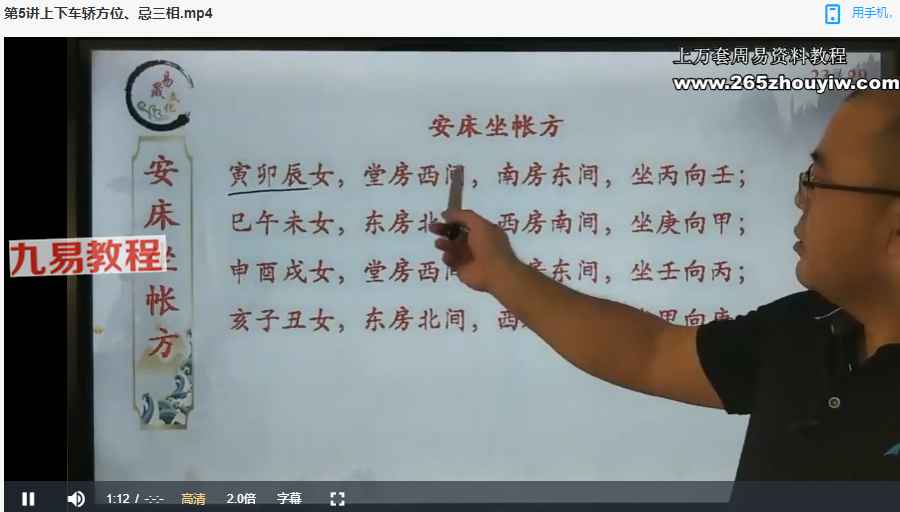 第5讲上下车轿方位、忌三相.mp4
用手机,
上万套周易资料教程
www.265zhouyiw.com
易晟文化
安床坐帐方
安床坐帐方
寅卯辰女，堂房西间，南房东间，坐丙向壬；
巳午未女，东房北 西房南间，坐庚向甲；
申酉戌女，堂房西间 房东间，坐壬向丙；
亥子丑女，东房北间，西 甲向庚
九易教程
1:12 / -:-:-
高清
2.0倍
字幕